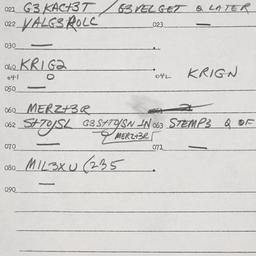 021 G3KACT3T / G3VEL GET & LATER
022 VALG3ROLC 023 —
030 — .
040 KRIG2
041 O 042 KRIGN
050 —
060 MERZ+3R 061 —
062 S++O/SL G3S++O/SN IN 063 STEMP3 & OF
MERZ+3R
070 — 072 —
080 MIL3XU (235
090 —